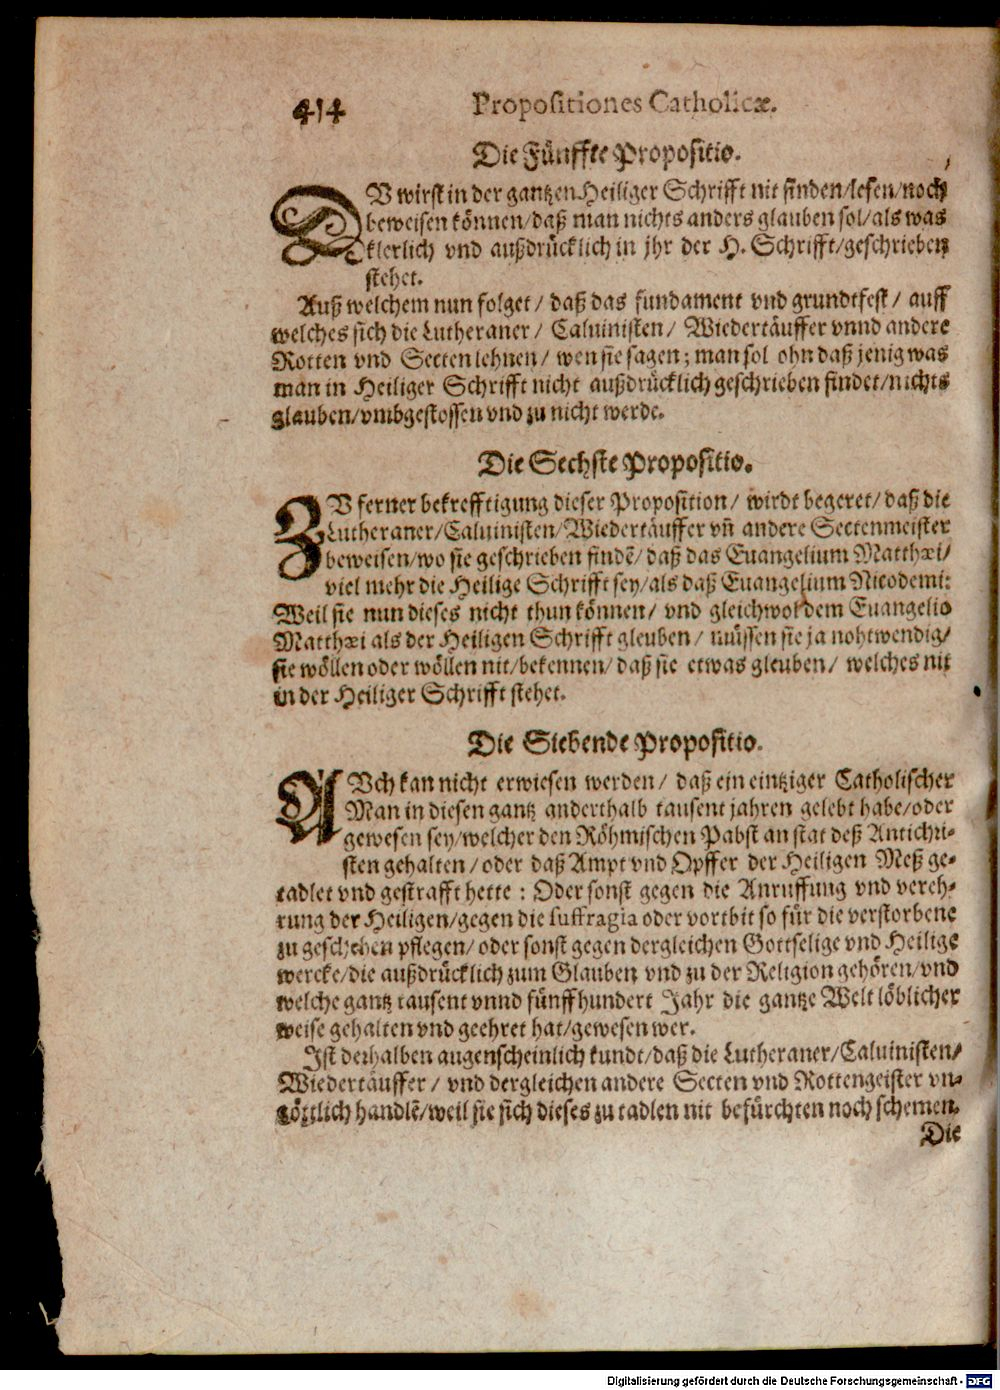 414 Propositiones Catholicæ.
Die Fünffte Propositio.
DV wirst in der gantzen Heiliger Schrifft nit finden/lesen/noch
beweisen können/daß man nichts anders glauben sol/als was
klerlich vnd außdrücklich in jhr der H. Schrifft/geschrieben
stehet.
Auß welchem nun folget/ daß das fundament vnd grundtfest/ auff
welches sich die Lutheraner/ Caluinisten/ Wiedertäuffer vnnd andere
Rotten vnd Secten lehnen/ wen sie sagen; man sol ohn daß jenig was
man in Heiliger Schrifft nicht außdrücklich geschrieben findet/nichts
glauben/vmbgestossen vnd zu nicht werde.
Die Sechste Propositio.
ZV ferner bekrefftigung dieser Proposition/ wirdt begeret/ daß die
Lutheraner/Caluinisten/Wiedertäuffer vñ andere Sectenmeister
beweisen/wo sie geschrieben findẽ/ daß das Euangelium Matthæi/
viel mehr die Heilige Schrifft sey/als daß Euangelium Nicodemi:
Weil sie nun dieses nicht thun können/ vnd gleichwol dem Euangelio
Matthæi als der Heiligen Schrifft gleuben/ müssen sie ja nohtwendig/
sie wöllen oder wöllen nit/bekennen/ daß sie etwas gleuben/ welches nit
in der Heiliger Schrifft stehet.
Die Siebende Propositio.
AVch kan nicht erwiesen werden/ daß ein eintziger Catholischer
Man in diesen gantz anderthalb tausent jahren gelebt habe/oder
gewesen sey/welcher den Röhmischen Pabst an stat deß Antichri-
sten gehalten/ oder daß Ampt vnd Opffer der Heiligen Meß ge-
tadlet vnd gestrafft hette: Oder sonst gegen die Anruffung vnd vereh-
rung der Heiligen/gegen die suffragia oder vortbit so für die verstorbene
zu geschehen pflegen/ oder sonst gegen dergleichen Gottselige vnd Heilige
wercke/die außdrücklich zum Glauben vnd zu der Religion gehören/vnd
welche gantz tausent vnnd fünffhundert Jahr die gantze Welt löblicher
weise gehalten vnd geehret hat/gewesen wer.
Ist derhalben augenscheinlich kundt/daß die Lutheraner/Caluinisten/
Wiedertäuffer/ vnd dergleichen andere Secten vnd Rottengeister vn-
göttlich handlẽ/weil sie sich dieses zu tadlen nit befürchten noch schemen.
Die
Digitalisierung gefördert durch die Deutsche Forschungsgemeinschaft - DFG